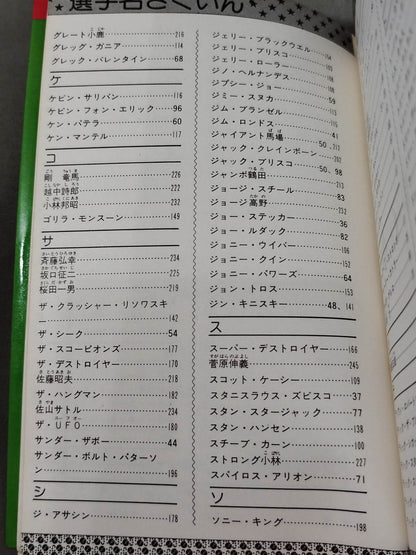 選手名さくいん
グレート小鹿 216
グレッグ・ガニア 114
グレック・バレンタイン 68
ケ
ケビン・サリバン 116
ケビン・フォン・エリック 96
ケン・パテラ 60
ケン・マンテル 117
コ
剛 竜馬 226
越中詩郎 222
小林邦昭 232
ゴリラ・モンスーン 149
サ
斉藤弘幸 234
坂口征二 225
桜田一男 219
ザ・クラッシャー・リソワスキ
142
ザ・シーク 54
ザ・スコーピオンズ 177
ザ・デストロイヤー 170
佐藤昭夫 218
ザ・ハングマン 182
佐山サトル 234
ザ・UFO 180
サンダー・ザボー 44
サンダー・ボルト・パターソ
ン 196
シ
ジ・アサシン 178
ジェリー・ブラックウエル 154
ジェリー・ブリスコ 109
ジェリー・ローラー
ジノ・ヘルナンデス
ジプシー・ジョー
ジミー・スヌカ
ジム・ブランゼル
ジム・ロンドス 41
ジャイアント馬場 50,
ジャック・クレインボーン
ジャック・ブリスコ 50, 98
ジャンボ鶴田
ジョージ・スチール 83
ジョージ高野
ジョー・ステッカー 36
ジョー・ルダック 82
ジョニー・ウイバー
ジョニー・クイン
ジョニー・パワーズ 64
ジョン・トロス
ジン・キニスキー 48, 141
ス
スーパー・デストロイヤー 166
菅原伸義 245
スコット・ケーシー 109
スタニスラウス・ズビスコ 37
スタン・スタージャック 77
スタン・ハンセン
スチーブ・カーン 100
ストロング小林 227
スパイロス・アリオン 71
ソ
ソニー・キング 198